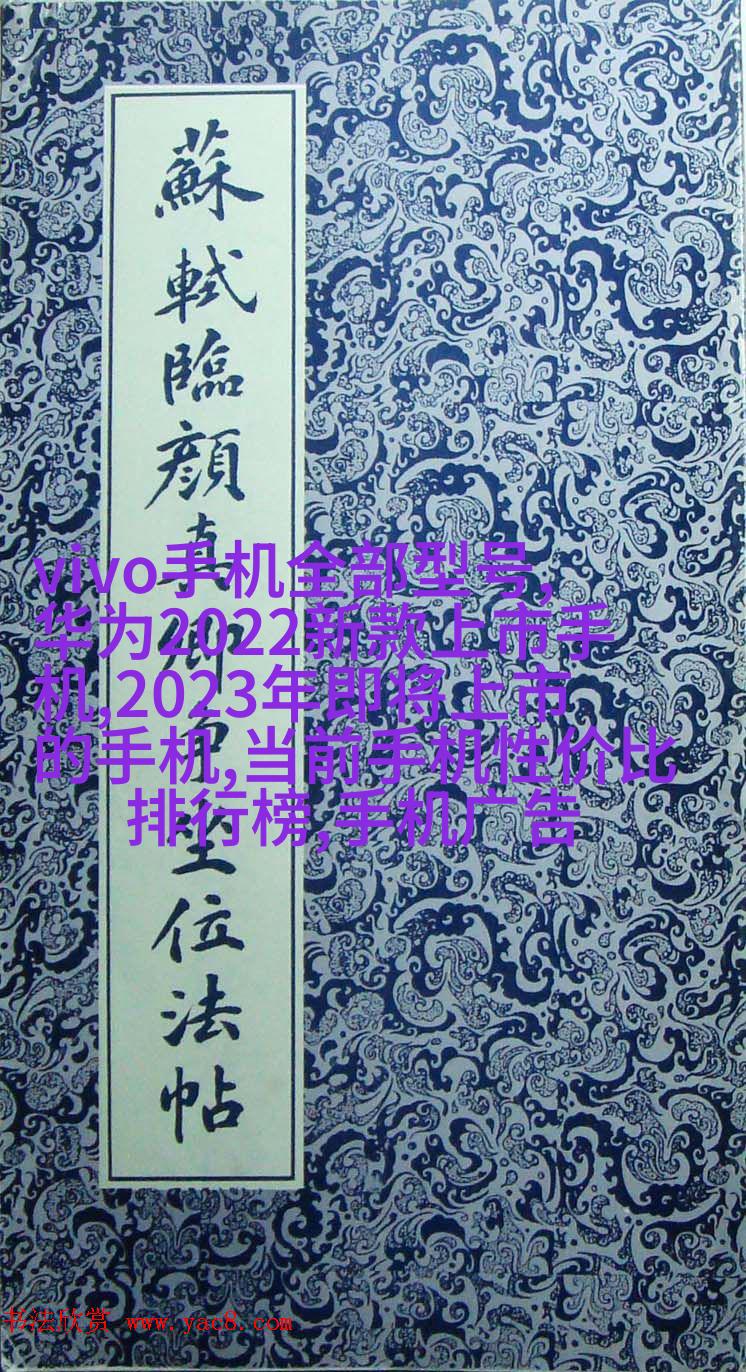 蘇軾臨顔真卿争坐位法帖
vivo手机全部型号,
华为2022新款上市手
机,2023年即将上市
的手机,当前手机性价比
排行榜,手机广告
书法欣赏 www.yac8.com